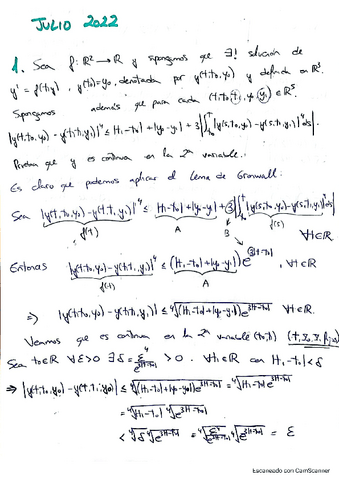 JULIO 2022
1. Sea f: ℝ² → ℝ y supongamos que ∃! solución de
y' = f(t,y), y(t₀)=y₀, denotada por y(t,t₀,y₀) y definida en ℝ³.
Supongamos además que para cada (t,t₀,t₁,y₀,y₁) ∈ ℝ⁵
|y(t,t₀,y₀) - y(t,t₁,y₁)|⁴ ≤ |t₁-t₀| + |y₀-y₁| + 3|∫ |y(s,t₀,y₀) - y(s,t₁,y₁)|⁴ds|.
Prueba que y es continua en la 2ª variable.
Es claro que podemos aplicar el Lema de Gronwall:
Sea |y(t,t₀,y₀) - y(t,t₁,y₁)|⁴ ≤ |t₁-t₀| + |y₀-y₁| + 3|∫ |y(s,t₀,y₀) - y(s,t₁,y₁)|⁴ds|
f(t) A B f(s) ∀t∈ℝ
Entonces |y(t,t₀,y₀) - y(t,t₁,y₁)|⁴ ≤ (|t₁-t₀| + |y₀-y₁|) e^{3|t-t₀|}, ∀t∈ℝ
f(t) A
⇒ |y(t,t₀,y₀) - y(t,t₁,y₁)| ≤ ⁴√((|t₁-t₀| + |y₀-y₁|) e^{3|t-t₀|}) ∀t∈ℝ.
Veamos que es continua en la 2ª variable (t₀,t₁)
Sea t₀∈ℝ ∀ε>0 ∃δ = ε⁴/e^{3|t-t₀|} > 0. ∀t₁∈ℝ con |t₁-t₀|<δ
⇒ |y(t,t₀,y₀) - y(t,t₁,y₀)| ≤ ⁴√((|t₁-t₀| + |y₀-y₀|) e^{3|t-t₀|}) = ⁴√(|t₁-t₀| e^{3|t-t₀|})
= ⁴√|t₁-t₀| ⁴√e^{3|t-t₀|}
< ⁴√δ ⁴√e^{3|t-t₀|} = ⁴√(ε⁴/e^{3|t-t₀|}) ⁴√e^{3|t-t₀|} = ε
Escaneado con CamScanner